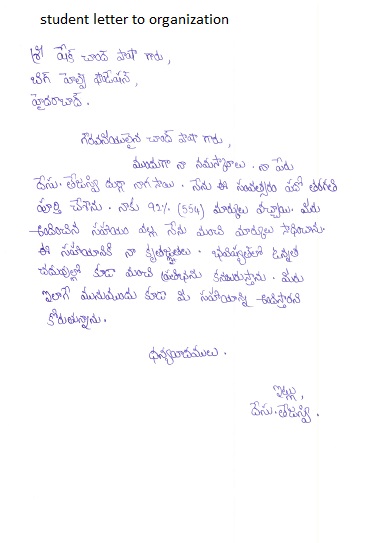 student letter to organization
శ్రీ షేక్ చాంద్ పాషా గారు,
బిగ్ హెల్ప్ ఫౌండేషన్,
హైదరాబాద్.
గౌరవనీయులైన చాంద్ పాషా గారు,
ముందుగా నా నమస్కారాలు. నా పేరు
దేసు. తేజస్వి దుర్గా నాగ సాయి. నేను ఈ సంవత్సరం పదో తరగతి
పూర్తి చేశాను. నాకు 92% (554) మార్కులు వచ్చాయి. మీరు
అందించిన సహాయం వల్ల నేను మంచి మార్కులు సాధించాను.
ఈ సహాయానికి నా కృతజ్ఞతలు. భవిష్యత్తులో ఉన్నత
చదువుల్లో కూడా మంచి ప్రతిభను కనబరుస్తాను. మీరు
ఇలాగే మునుముందు కూడా మీ సహాయాన్ని అందిస్తారని
కోరుతున్నాను.
ధన్యవాదములు.
ఇట్లు,
దేసు. తేజస్వి.